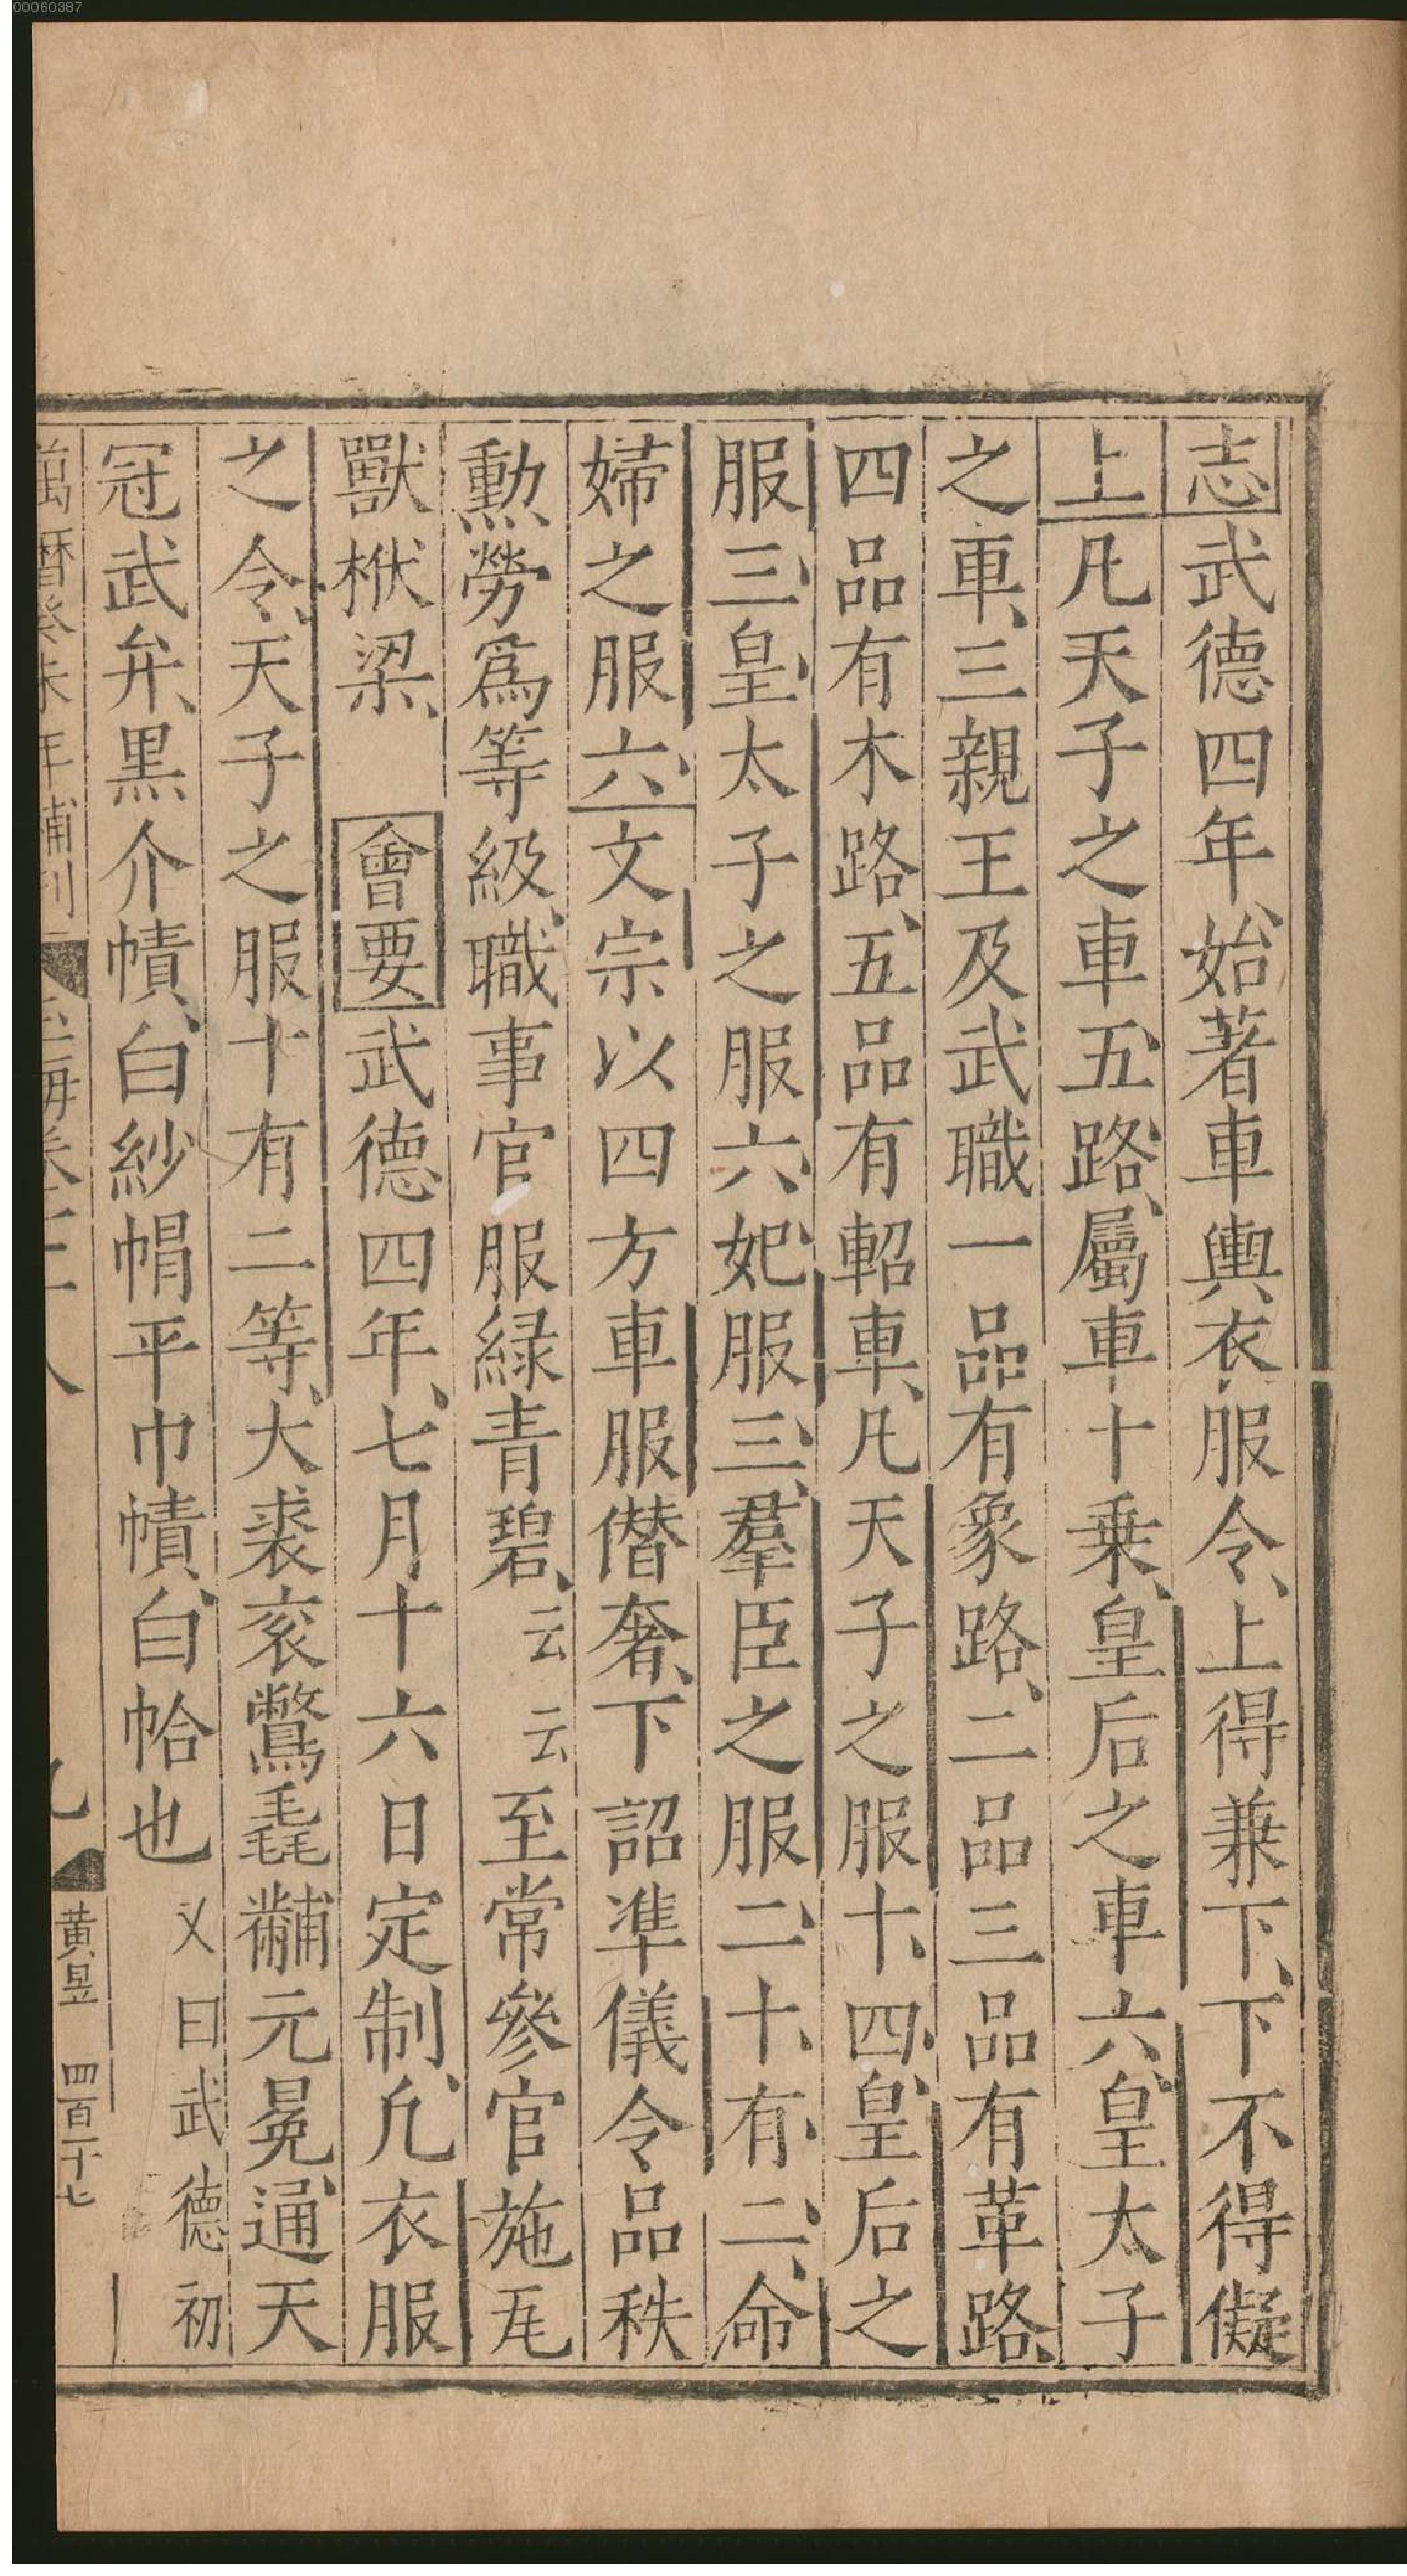 00060387
志武德四年、始著車輿衣服令、上得兼下、下不得儗
上凡天子之車五路、屬車十乗、皇后之車六、皇太子
之車、三親王及武職一品有象路、二品三品有革路、
四品有木路、五品有軺車、凡天子之服十、四、皇后之
服三、皇太子之服六、妃服三、羣臣之服二、十、有、二、命
婦之服六、文宗以四方車服僣奢、下詔凖儀令品秩
勳勞爲等級、職事官服緑青碧、云云至常參官施瓦
獸栿梁、會要武德四年、七月十六日定制、凢衣服
之令、天子之服十有二等、大裘衮鷩毳黼元冕、通天
冠武弁、黒介幘、白紗㡌平巾幘、白帢也乂曰武德初
萬暦癸未年補刊
玉海卷
九
黄昱 四百二十七